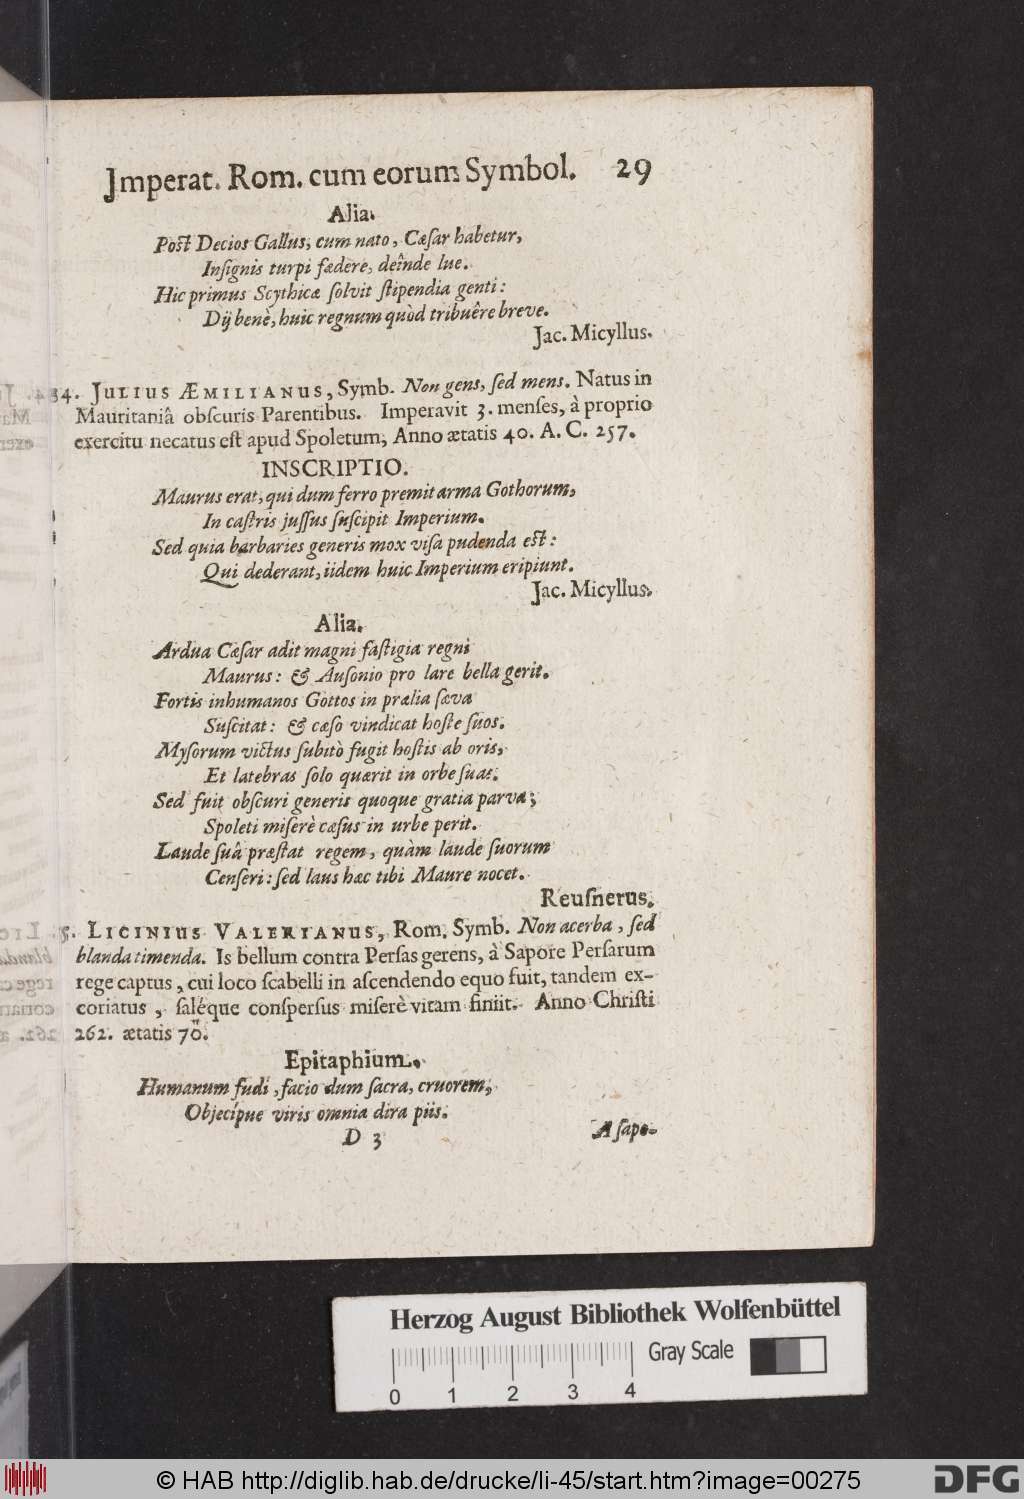 Jmperat. Rom. cum eorum Symbol. 29
Alia.
Post Decios Gallus, cum nato, Cæſar habetur,
Inſignis turpi fædere, deînde lue.
Hic primus Scythicæ ſolvit ſtipendia genti:
Dij benè, huic regnum quòd tribuêre breve.
Jac. Micyllus.
34. JULIUS ÆMILIANUS, Symb. Non gens, ſed mens. Natus in
Mauritaniâ obſcuris Parentibus. Imperavit 3. menſes, à proprio
exercitu necatus eſt apud Spoletum, Anno ætatis 40. A. C. 257.
INSCRIPTIO.
Maurus erat, qui dum ferro premit arma Gothorum,
In caſtris juſſus ſuſcipit Imperium.
Sed quia barbaries generis mox viſa pudenda eſt:
Qui dederant, iidem huic Imperium eripiunt.
Jac. Micyllus.
Alia.
Ardua Cæſar adit magni faſtigia regni
Maurus: & Auſonio pro lare bella gerit.
Fortis inhumanos Gottos in prælia ſæva
Suſcitat: & cæſo vindicat hoſte ſuos.
Myſorum victus ſubitò fugit hoſtis ab oris,
Et latebras ſolo quærit in orbe ſuas.
Sed fuit obſcuri generis quoque gratia parva;
Spoleti miſerè cæſus in urbe perit.
Laude ſuâ præſtat regem, quàm laude ſuorum
Cenſeri: ſed laus hæc tibi Maure nocet.
Reuſnerus.
5. LICINIUS VALERIANUS, Rom. Symb. Non acerba, ſed
blanda timenda. Is bellum contra Perſas gerens, à Sapore Perſarum
rege captus, cui loco ſcabelli in aſcendendo equo fuit, tandem ex-
coriatus, ſaléque conſperſus miſerè vitam finiit. Anno Chriſti
262. ætatis 70.
Epitaphium.
Humanum fudi, facio dum ſacra, cruorem,
Objecípue viris omnia dira piis.
D 3 A ſapo-
Herzog August Bibliothek Wolfenbüttel
Gray Scale
0 1 2 3 4
© HAB http://diglib.hab.de/drucke/li-45/start.htm?image=00275
DFG